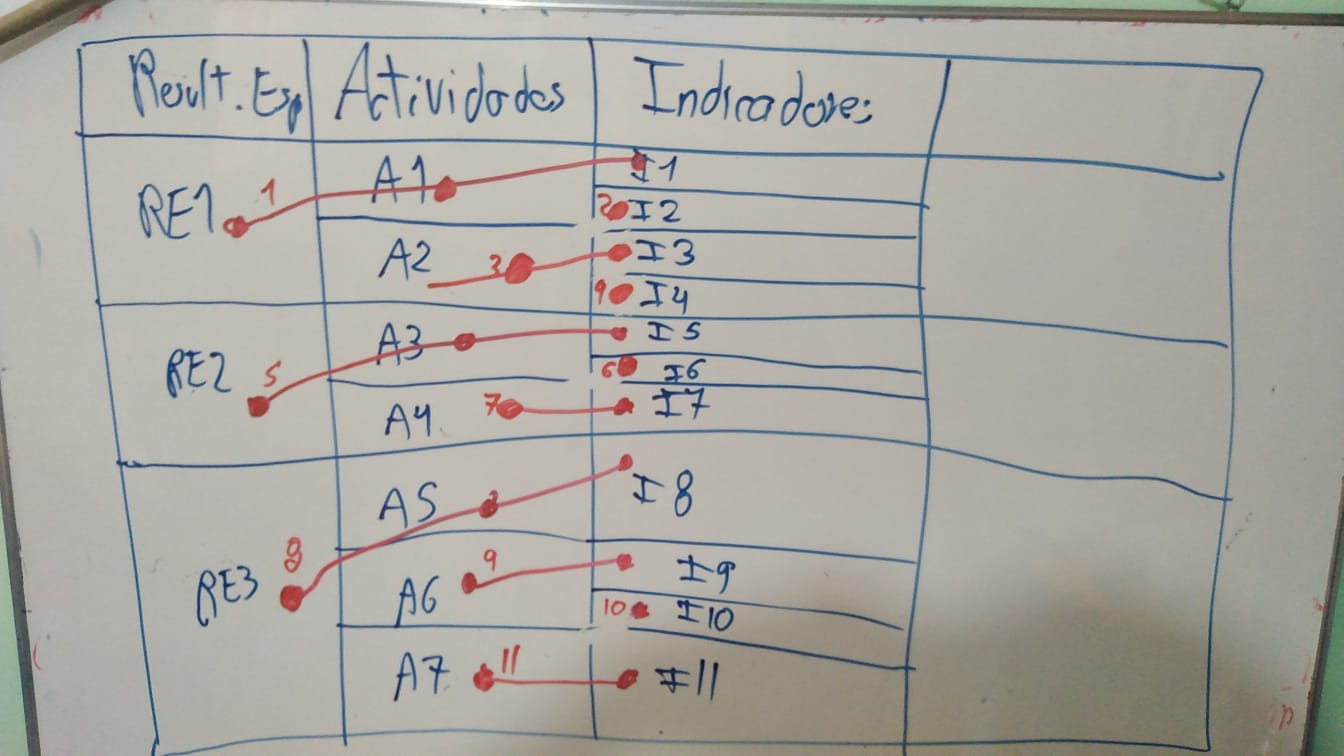 Result. Esp Actividades Indicadores
RE1 1 A1 I1
2 I2
A2 3 I3
9 I4
A3 I5
RE2 5 6 I6
A4 7 I7
A5 I8
RE3 8 A6 9 I9
10 I10
A7 11 I11